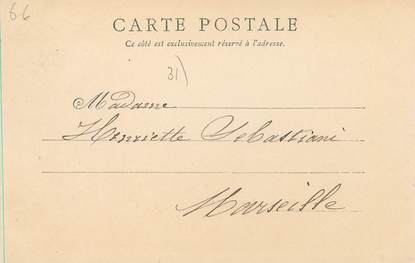 66
CARTE POSTALE
Ce côté est exclusivement réservé à l'adresse.
31)
Madame
Henriette Sebastiani
Marseille